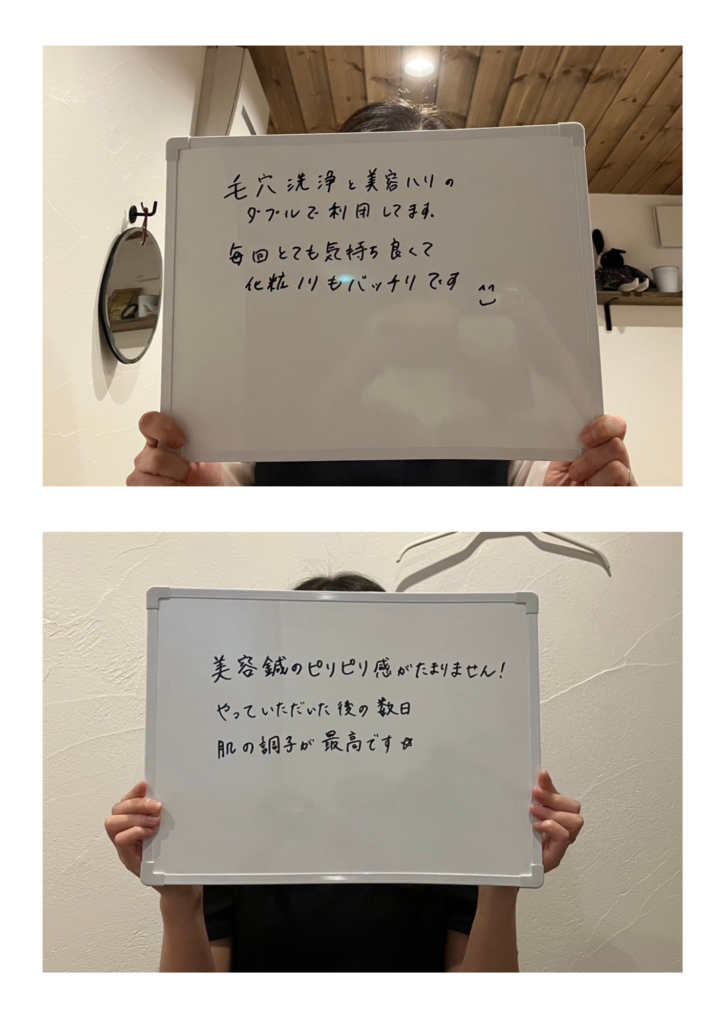 毛穴洗浄と美容ハリの
ダブルで利用してます。
毎回とても気持ち良くて
化粧ノリもバッチリです
美容鍼のピリピリ感がたまりません!
やっていただいた後の数日
肌の調子が最高です☆